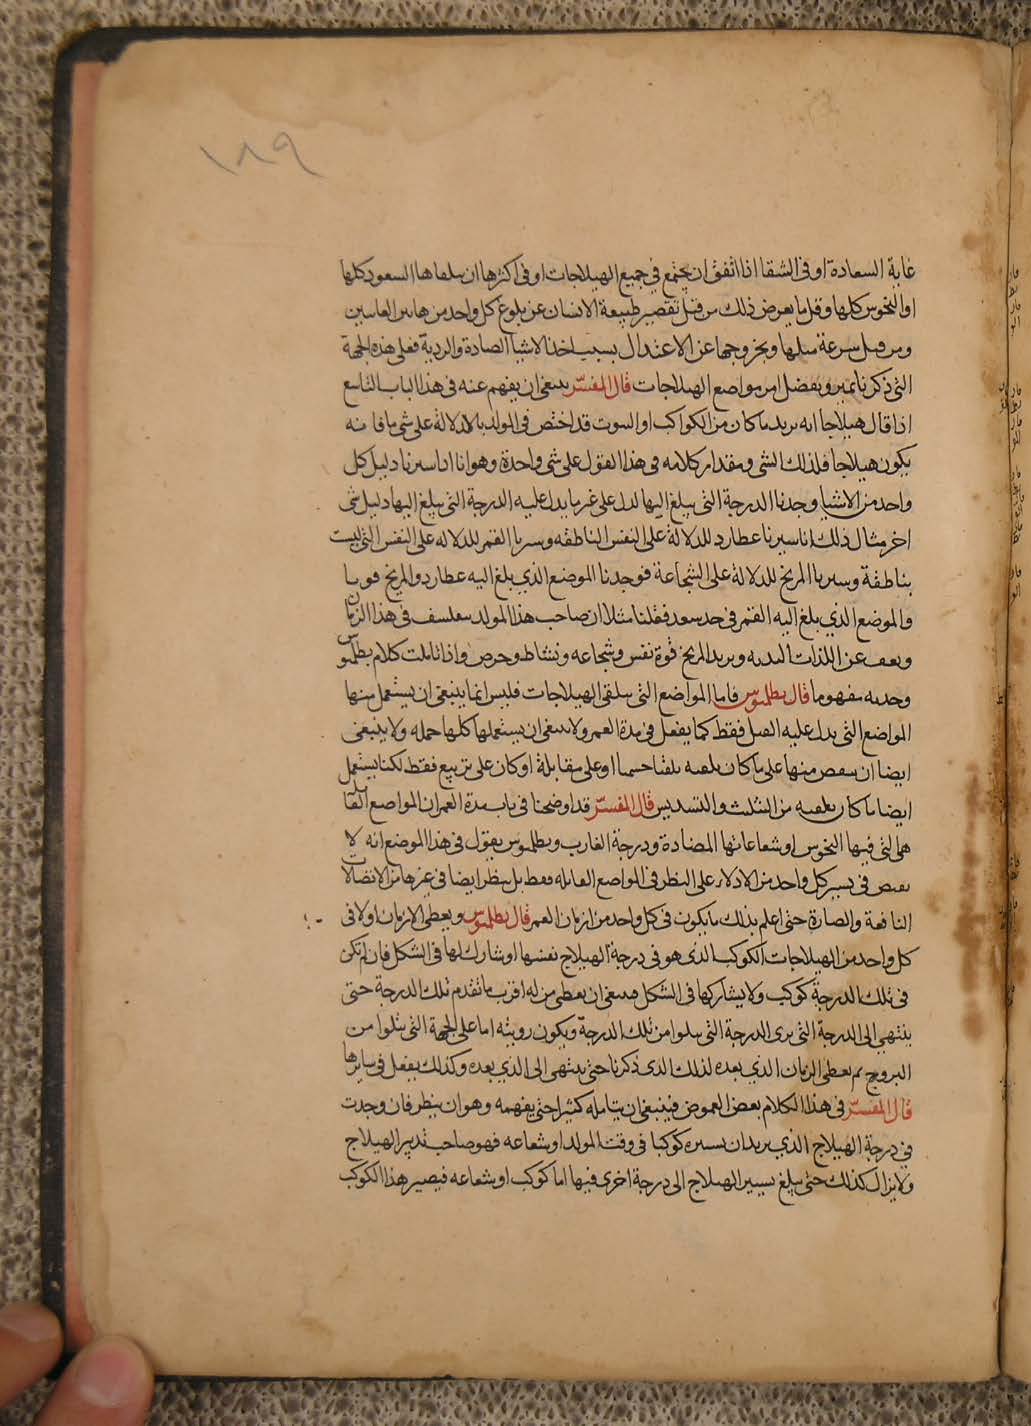 ١٨٩
غاية السعادة او في الشقا اذا اتفق ان يجتمع في جميع الهيلاجات او في اكثرها ان يلقاها السعود كلها
او النحوس كلها وقل ما يعرض ذلك من قبل تقصير طبيعة الانسان عن بلوغ كل واحد من هاتين الغايتين
ومن قبل سرعة ميلها وخروجها عن الاعتدال بسبب اخذ الاشيا الضادة والردية فعلى هذه الجهة
التي ذكرنا نميز ونفصل امر مواضع الهيلاجات قال المفسّر ينبغي ان يفهم عنه في هذا الباب التاسع
اذا قال هيلاجا انه يريد ما كان من الكواكب او البيوت قد اختص في المولد بالدلالة على شي ما فانه
يكون هيلاجا فلذلك الشي ومقدار كلامه في هذا القول على شي واحدة وهو انا اذا سيرنا دليل كل
واحد من الاشيا وجدنا الدرجة التي يبلغ اليها تدل على غير ما يدل عليه الدرجة التي يبلغ اليها دليل شي
اخر مثال ذلك انا سيرنا عطارد للدلالة على النفس الناطقه وسيرنا القمر للدلاله على النفس التي ليست
بناطقة وسيرنا المريخ للدلالة على الشجاعة فوجدنا الموضع الذي بلغ اليه عطارد والمريخ قويا
والموضع الذي بلغ اليه القمر في حد سعد فقلنا مثلا ان صاحب هذا المولد يتفلسف في هذا الزمان
ويعف عن اللذات البدنيه ويزيد المريخ قوة نفس وشجاعه ونشاط وحرص واذا تاملت كلام بطلميوس
وجدته مفهوما قال بطلميوس فاما المواضع التي تلقى الهيلاجات فليس انما ينبغي ان يستعمل منها
المواضع التي يدل عليه القبل فقط كما يفعل في مدة العمر ولا ينبغي ان يستعملها كلها جمله ولا ينبغي
ايضا ان ينقص منها على ما كان يلقيه يلقا جسما او على مقابلة او كان على تربيع فقط لكنا يستعمل
ايضا ما كان يلقيه من التثليث والتسديس قال المفسّر قد اوضحنا في باب مدة العمر ان المواضع القاتله
هي التي فيها النحوس او شعاعاتها المضادة ودرجة الغارب وبطلميوس يقول في هذا الموضع انه لا
يقتص في تسيير كل واحد من الادلاء على النظر في المواضع القاتله فقط بل ينظر ايضا في غيرها من الاتصالات
النافعة والضارة حتى اعلم بذلك ما يكون في كل واحد من ازمان العمر قال بطلميوس ويعطى الازمان اولا في
كل واحد من الهيلاجات الكوكب الذي هو في درجة الهيلاج نفسها او شارك لها في الشكل فان لم تكن
في تلك الدرجة كوكب ولا يشاركها في الشكل فينبغي ان يعطى من له اقرب ما تقدم تلك الدرجة حتى
ينتهي الى الدرجة التي يرى الدرجة التي يتلوا من تلك الدرجة ويكون رويته اما على الجهة التي يتلوا من
البروج ثم يعطى الزمان الذي بعده لذلك الذي ذكرنا حتى ينتهي الى الذي بعده وكذلك يفعل في سايرها
قال المفسّر في هذا الكلام بعض الغموض فينبغي ان يتامله كثيرا حتى يفهمه وهو ان ينظر فان وجدت
في درجة الهيلاج الذي يريد ان تسيره كوكبا في وقت المولد او شعاعه فهو صاحب تدبير الهيلاج
ولا يزال كذلك حتى يبلغ تسيير الهيلاج الى درجة اخرى فيها اما كوكب او شعاعه فيصير هذا الكوكب